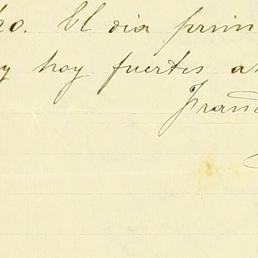 ho. El dia prim
y hoy fuertes a
Fran